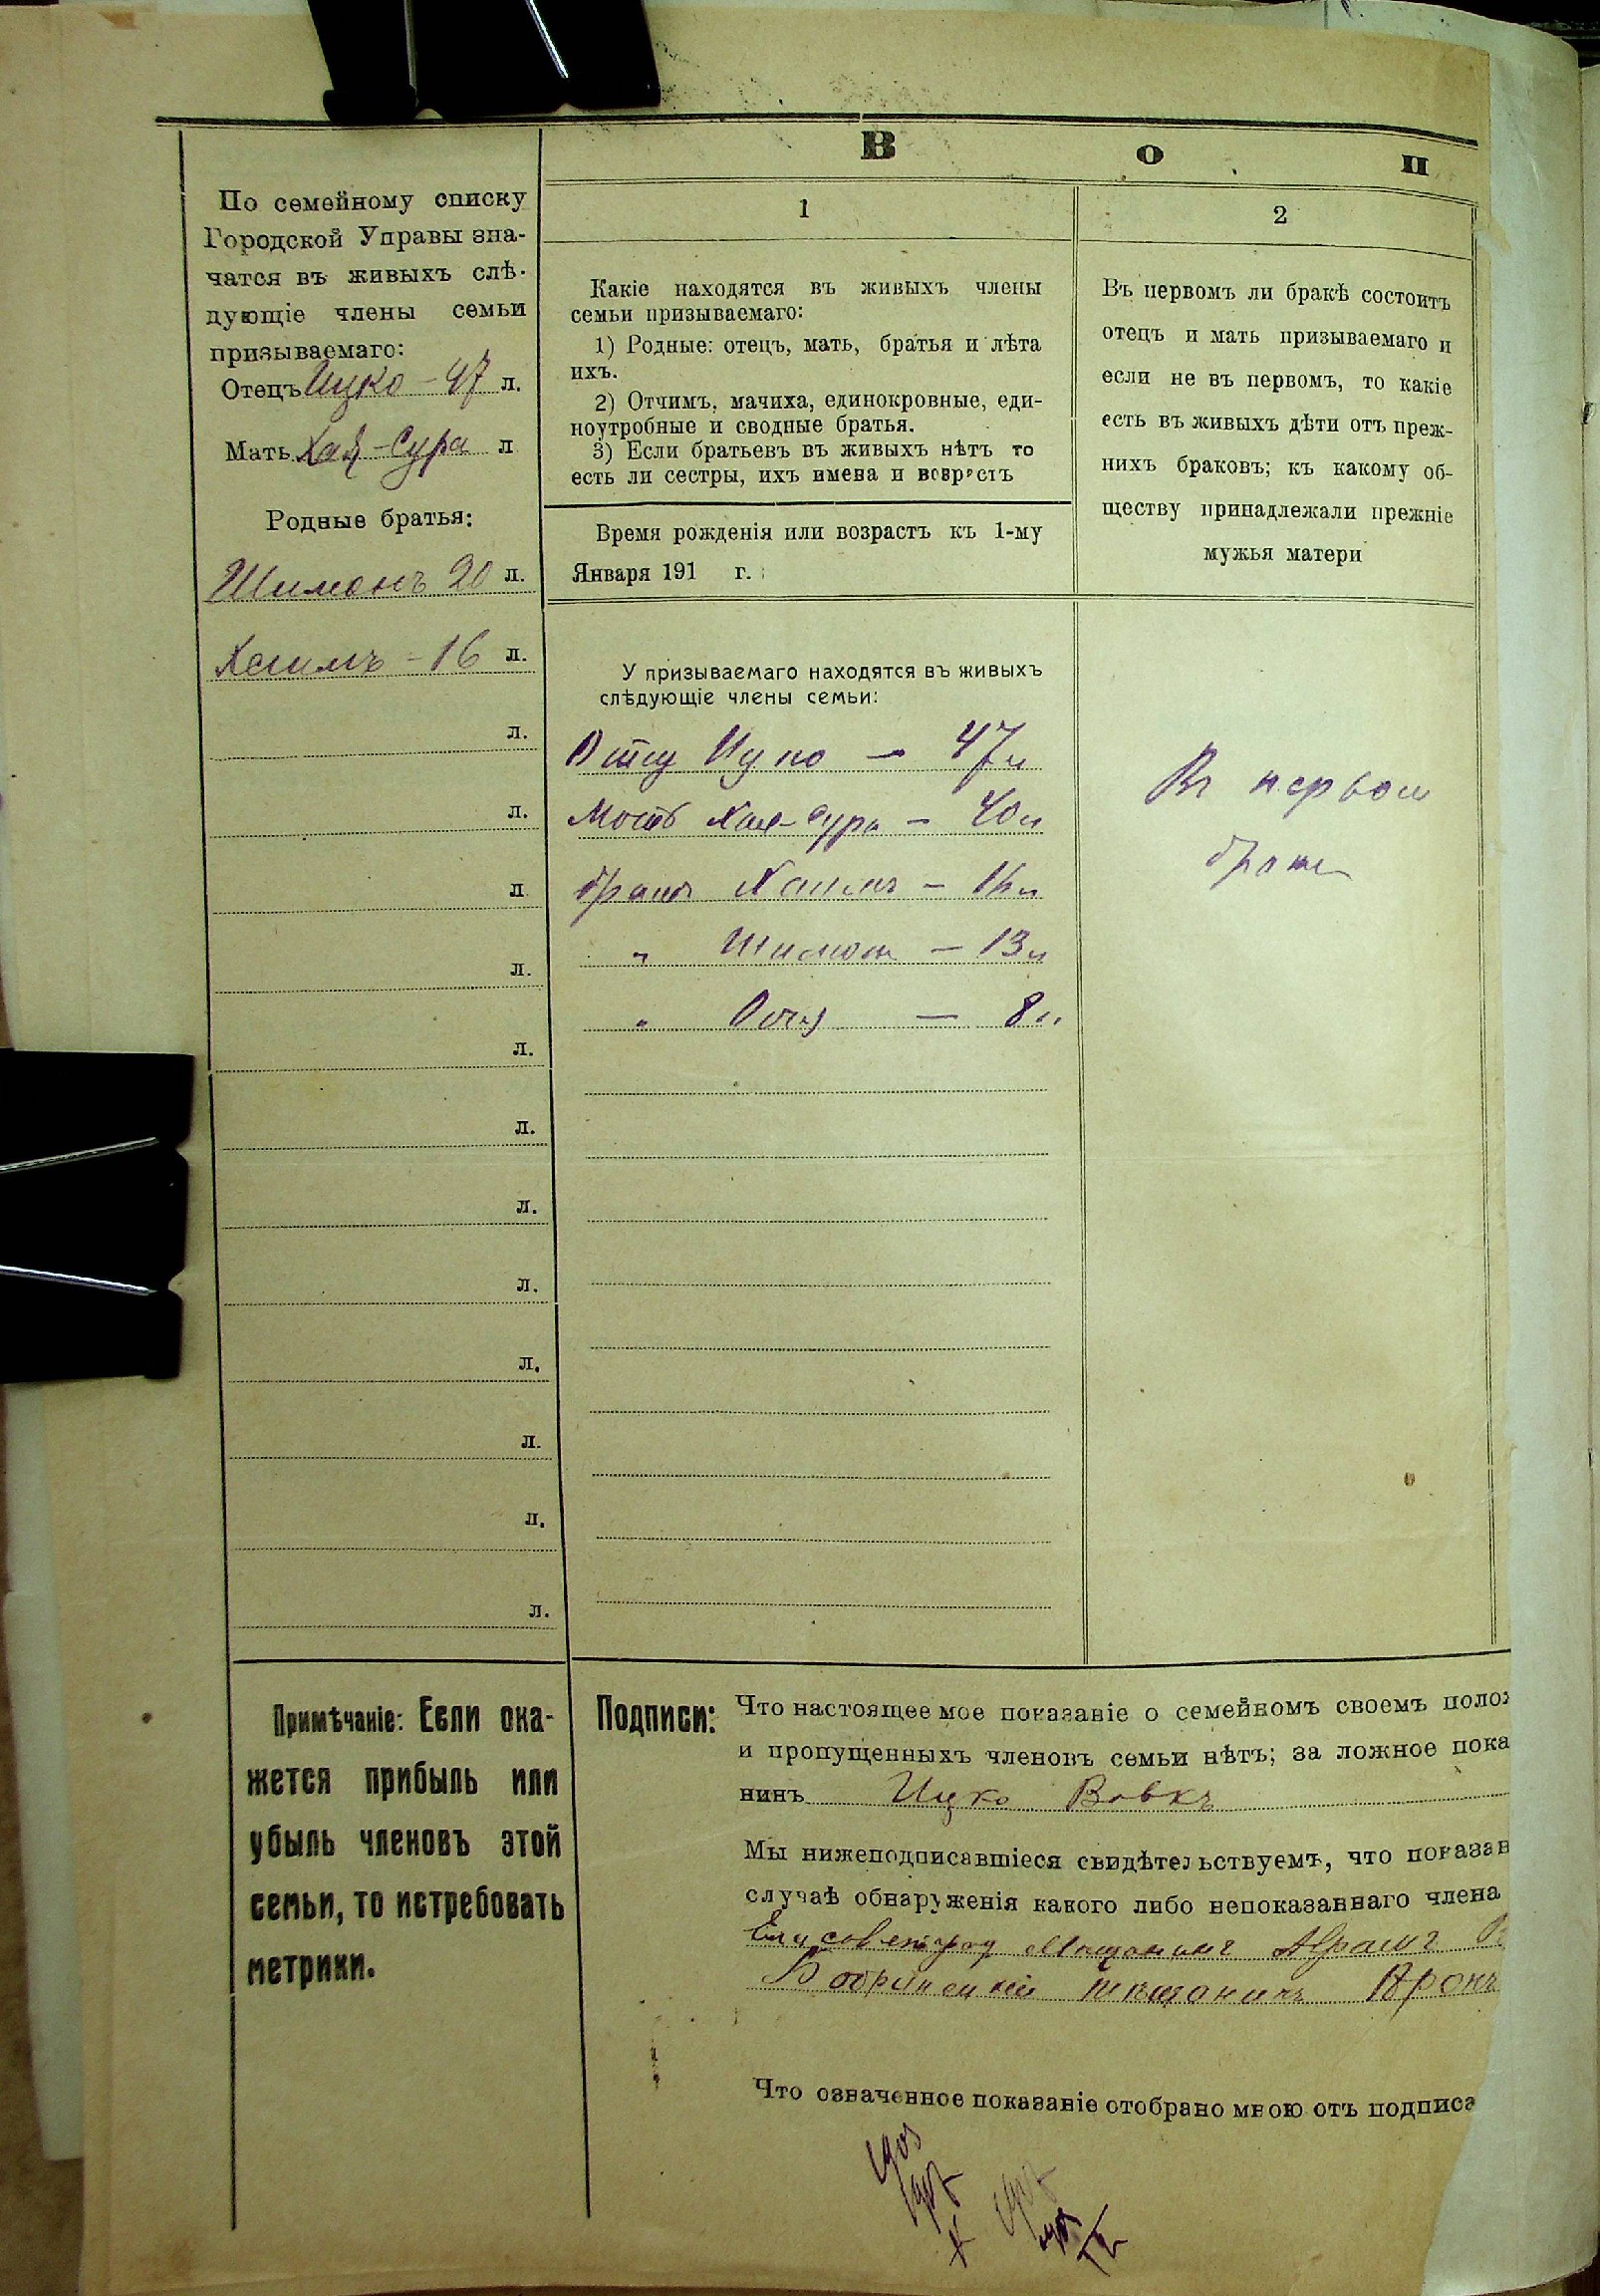 В о п
По семейному списку
Городской Управы зна-
чатся въ живыхъ слѣ-
дующіе члены семьи
призываемаго:
Отецъ Ицко - 47 л.
Мать Хая-Сура л
Родные братья:
Шимонъ 20 л.
Хаимъ - 16 л.
л.
л.
л
л.
л.
л.
л.
л.
л.
л.
л.
л.
1
Какіе находятся въ живыхъ члены
семьи призываемаго:
1) Родные: отецъ, мать, братья и лѣта
ихъ.
2) Отчимъ, мачиха, единокровные, еди-
ноутробные и сводные братья.
3) Если братьевъ въ живыхъ нѣтъ то
есть ли сестры, ихъ имена и возрастъ
Время рожденія или возрастъ къ 1-му
Января 191 г.
У призываемаго находятся въ живыхъ
слѣдующіе члены семьи:
Отец Ицко — 47 л
Мать Хая-Сура — 40 л
брат Хаимъ — 16 л
" Шимон — 13 л
" — 8 л
2
Въ первомъ ли бракѣ состоитъ
отецъ и мать призываемаго и
если не въ первомъ, то какіе
есть въ живыхъ дѣти отъ преж-
нихъ браковъ; къ какому об-
ществу принадлежали прежніе
мужья матери
Въ первом
браке
Примѣчаніе: Если ока-
жется прибыль или
убыль членовъ этой
семьи, то истребовать
метрики.
Подписи: Что настоящее мое показаніе о семейномъ своемъ полож
и пропущенныхъ членовъ семьи нѣтъ; за ложное пока
нинъ Ицко Вовкъ
Мы нижеподписавшіеся свидѣтельствуемъ, что показан
случаѣ обнаруженія какого либо непоказаннаго члена
Елисаветград Мещанинъ Абрамъ
Бобринецкій мещанинъ Аронъ
Что означенное показаніе отобрано мною отъ подписа